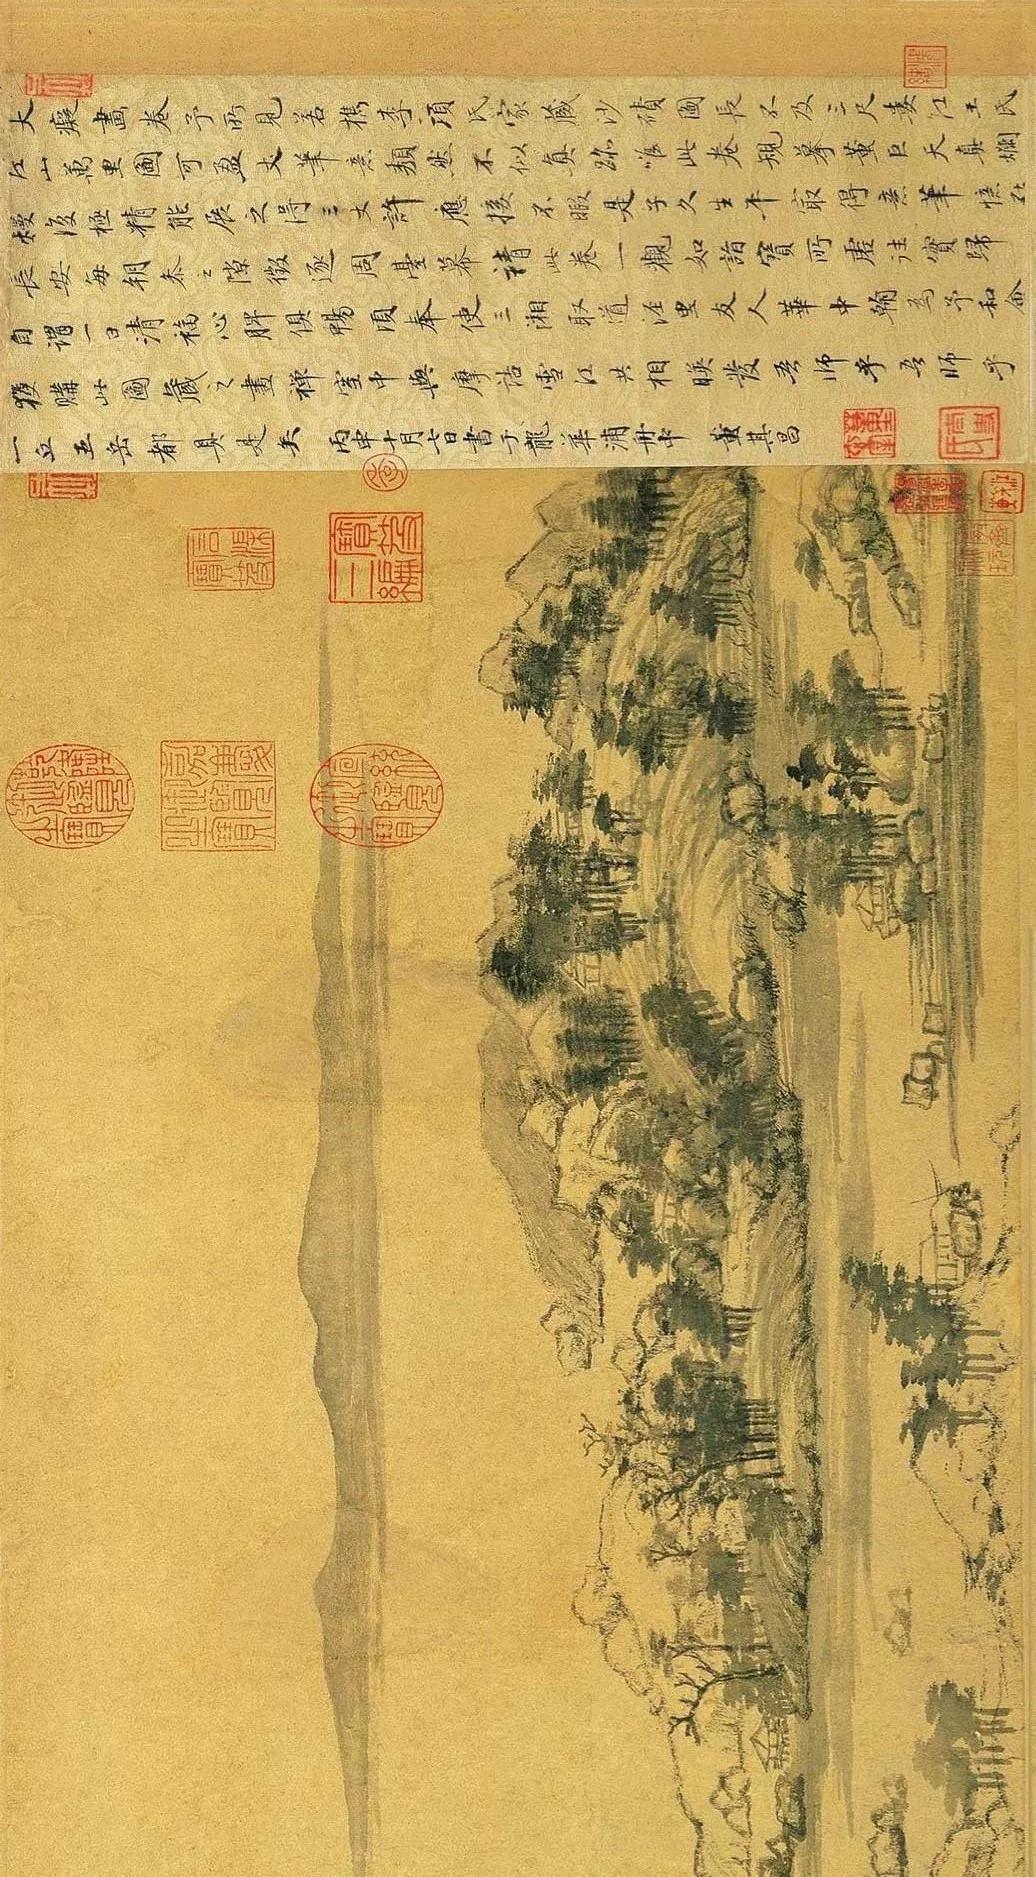 大癡畫卷予所見若檇李項氏家藏沙磧圖長不及三尺婁江王氏
江山萬里圖可盈丈筆意頹然不似真跡唯此卷規摹董巨天真爛
熳復極精能展之得三丈許應接不暇是子久生平最得意筆憶在
長安每朝參之隙徵逐周臺幕請此卷一觀如詣寶所虛往實歸
自謂一日清福心脾俱暢頃奉使三湘取道涇里友人華中翰為予和会
獲購此圖藏之畫禪室中與摩詰雪江共相映發吾師乎吾師乎
一丘五岳都具是矣 丙申十月七日書于龍華浦舟中 董其昌
石渠寶笈
寶笈三編